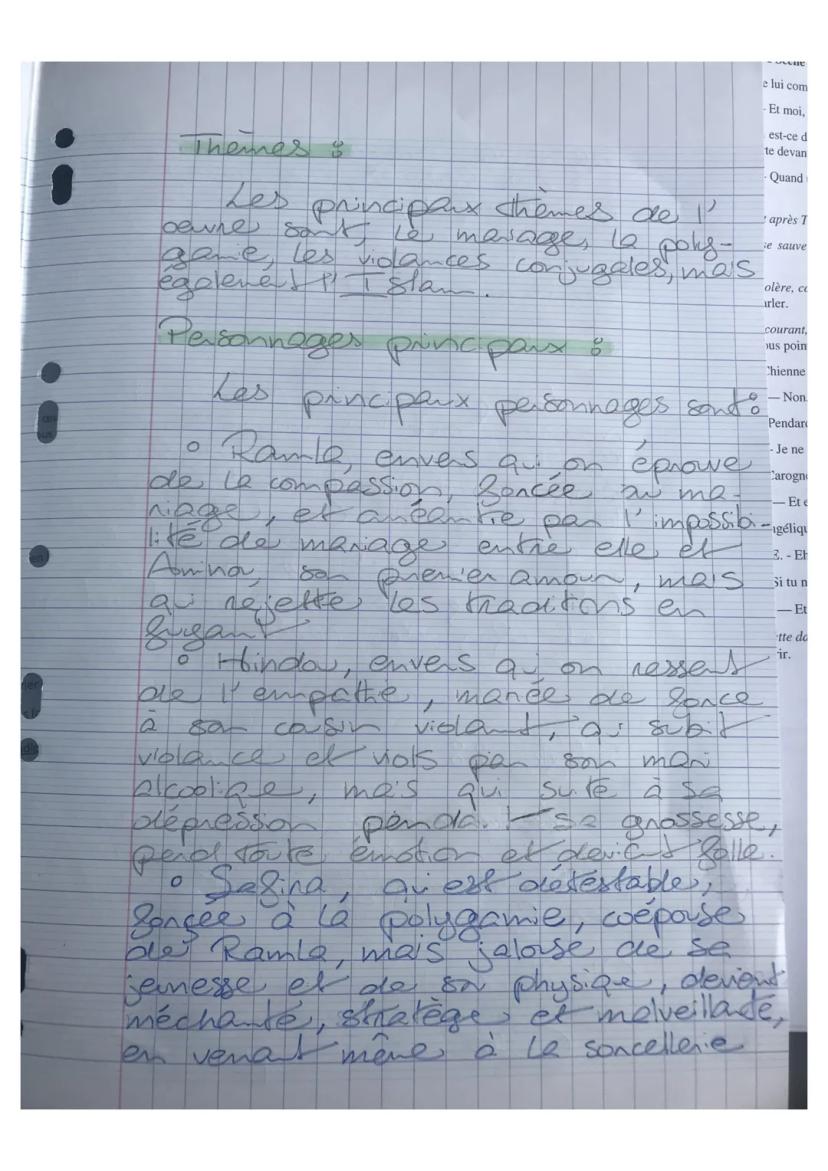 Thèmes :
Les principaux thèmes de l'
oeuvre sont, le mariage, la poly-
gamie, les violances conjugales, mais
également l'Islam.
Personnages principaux :
Les principaux personnages sont :
o Ramla, envers qui on éprouve
de la compassion, forcée au ma-
riage, et anéantie par l'impossibi-
lité de mariage entre elle et
Aminou, son premier amour, mais
qui rejette les traditions en
fuyant
o Hindou, envers qui on ressent
de l'empathie, mariée de force
à son cousin violant, qui subit
violance et viols par son mari
alcoolique, mais qui suite à sa
dépression pendant sa grossesse,
perd toute émotion et devient folle.
o Safira, qui est détéstable,
forcée à la polygamie, coépouse
de Ramla, mais jalouse de sa
jeunesse et de son physique, devient
méchante, stratège et malveillante,
en venant même à la sorcellerie
e lui com
- Et moi,
est-ce d
te devan
- Quand
après T
se sauve
olère, co
arler.
courant,
us poin
hienne
— Non.
Pendard
- Je ne
Carogne
— Et
ngéliqu
3. - Eh
Si tu n
— Et
tte do
ir.